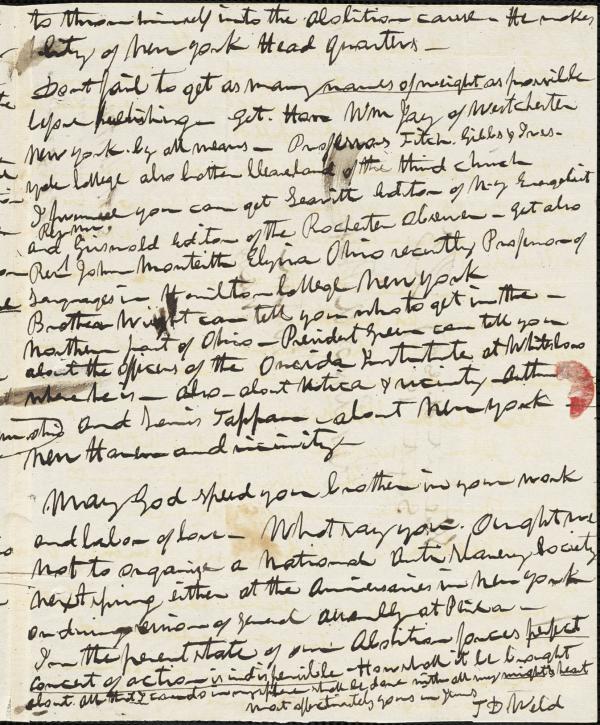 to throw himself into the abolition cause - He makes
City of New York Head quarters -
Dont fail to get as many names of weight as possible
before publishing - Get. Hon Wm Jay of Westchester
New York. by all means - Professors Fitch. Gibbs &
Yale College also brother Cleaveland of the third church
I presume you can get Leavitt Editor of N-Y Evangelist
Revd Mr.
and Griswold Editor of the Rochester Observer - Get also
Revd John Monteith Elyria Ohio recently Professor of
Languages in Hamilton College New York
Brother Wright can tell you who to get in the -
Northern part of Ohio - President Green can tell you
about the officers of the Oneida Institute at Whitesboro
where he is - also about Utica & vicinity - Arthur
and Lewis Tappan - about New York -
New Haven and vicinity -
May God speed you brother in your work
and labor of love - What say you. Ought we
not to organize a National Anti Slavery Society
next spring either at the Anniversaries in New York
or during session of General assembly at Phila -
In the present state of our Abolition forces perfect
concert of action is indispensible - How shall it be brought
about. All that I can do in my sphere shall be done with all my might & heart
most affectionately yours in Jesus
T D Weld